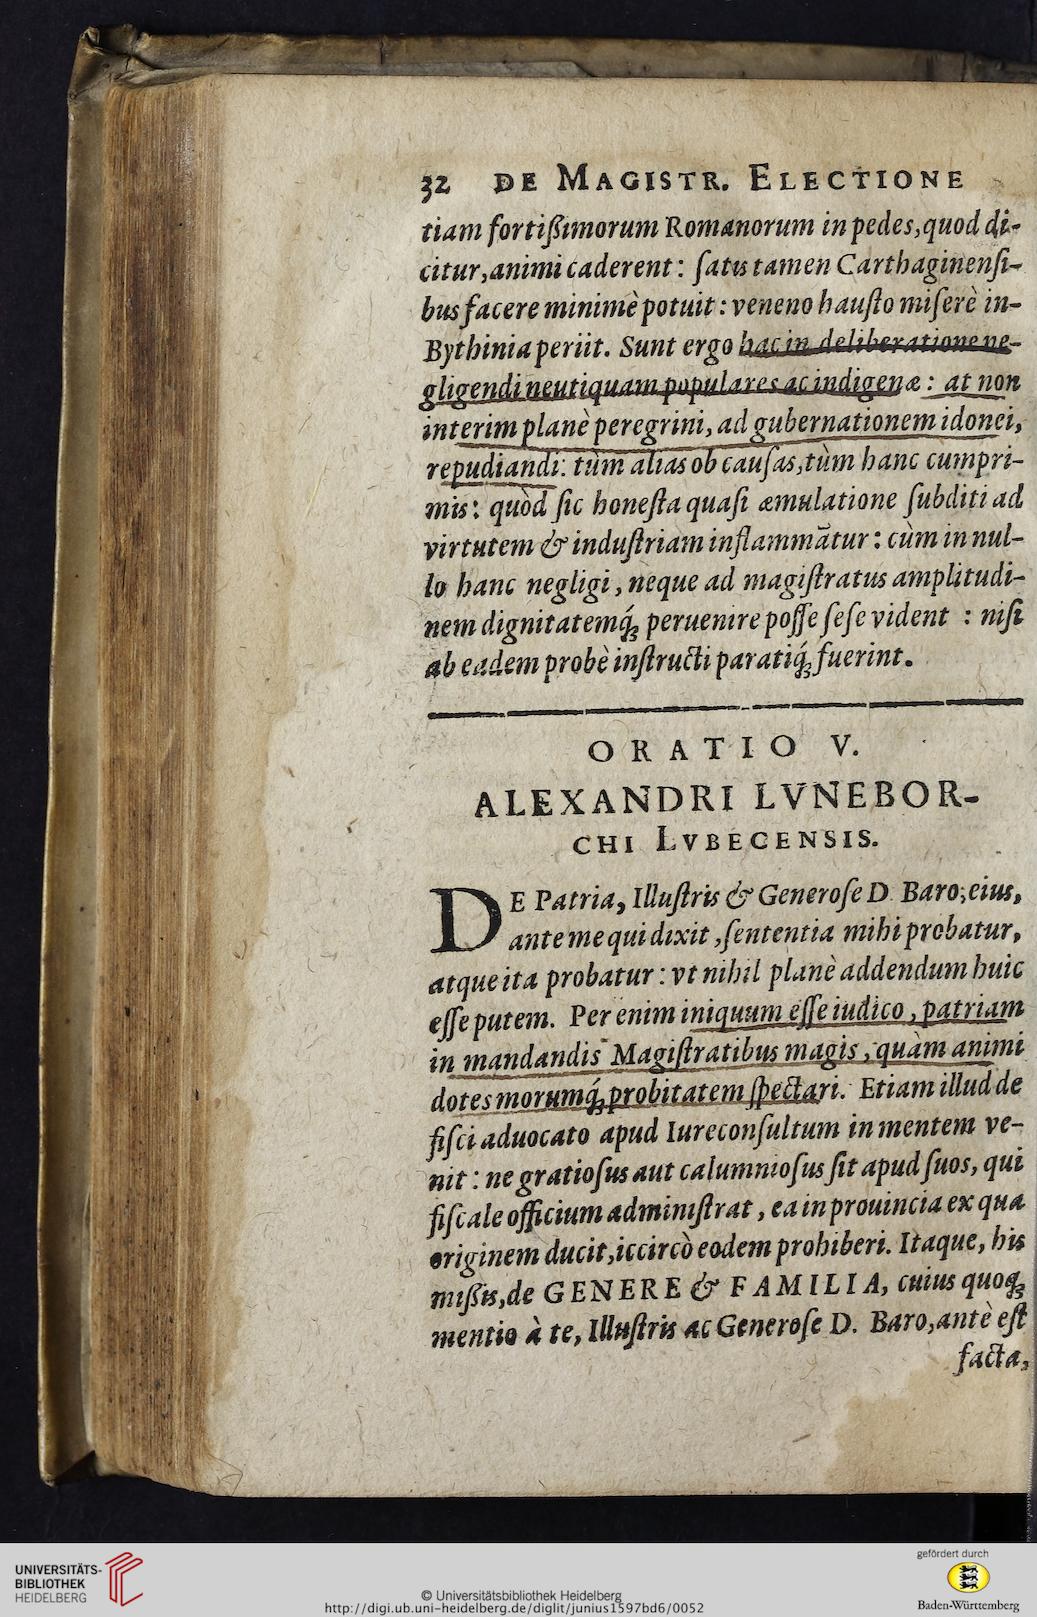 32 DE MAGISTR. ELECTIONE
tiam fortißimorum Romanorum in pedes, quod di-
citur, animi caderent: ſatis tamen Carthaginenſi-
bus facere minimè potuit: veneno hauſto miſerè in-
Bythinia periit. Sunt ergo hac in deliberatione ne-
gligendi neutiquam populares ac indigenæ: at non
interim planè peregrini, ad gubernationem idonei,
repudiandi: tùm alias ob cauſas, tùm hanc cumpri-
mis: quòd ſic honeſta quaſi æmulatione ſubditi ad
virtutem & induſtriam inflammãtur: cùm in nul-
lo hanc negligi, neque ad magiſtratus amplitudi-
nem dignitatemq́; peruenire poſſe ſeſe vident : niſi
ab eadem probè inſtructi paratiq́; fuerint.
ORATIO V.
ALEXANDRI LVNEBOR-
CHI LVBECENSIS.
DE Patria, Illuſtris & Generoſe D. Baro, eius,
ante me qui dixit, ſententia mihi probatur,
atque ita probatur: vt nihil planè addendum huic
eſſe putem. Per enim iniquum eſſe iudico, patriam
in mandandis Magiſtratibus magis, quàm animi
dotes morumq́; probitatem ſpectari. Etiam illud de
fiſci aduocato apud Iureconſultum in mentem ve-
nit: ne gratioſus aut calumnioſus ſit apud ſuos, qui
fiſcale officium adminiſtrat, ea in prouincia ex qua
originem ducit, iccircò eodem prohiberi. Itaque, his
mißis, de GENERE & FAMILIA, cuius quoq;
mentio à te, Illuſtris ac Generoſe D. Baro, antè eſt
facta,
UNIVERSITÄTS-
BIBLIOTHEK
HEIDELBERG
© Universitätsbibliothek Heidelberg
http://digi.ub.uni-heidelberg.de/diglit/junius1597bd6/0052
gefördert durch
Baden-Württemberg